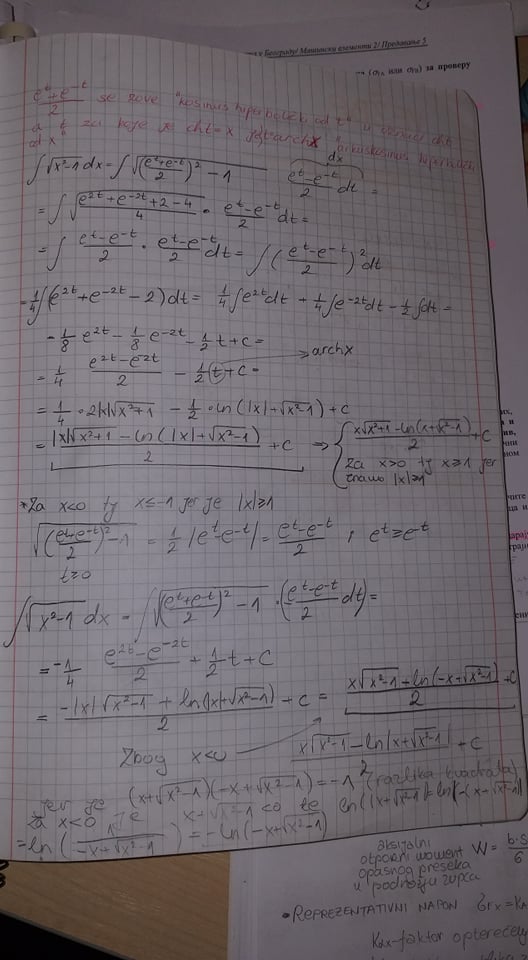 у Београду/ Машински елементи 2/ Предавање 5
или за проверу
(e^t+e^-t)/2 se zove "kosinus hiperbolički od t" u oznaci cht
a t za koje je cht=x jest archX
od x"
∫√(x²-1) dx = ∫√(((e^t+e^-t)/2)² - 1) (e^t-e^-t)/2 dt =
dx
= ∫√((e^2t+e^-2t+2-4)/4) · (e^t-e^-t)/2 dt =
= ∫ (e^t-e^-t)/2 · (e^t-e^-t)/2 dt = ∫((e^t-e^-t)/2)² dt
= 1/4 ∫(e^2t+e^-2t-2)dt = 1/4 ∫e^2t dt + 1/4 ∫e^-2t dt - 1/2 ∫dt =
= 1/8 e^2t - 1/8 e^-2t - 1/2 t + c =
= 1/4 (e^2t-e^-2t)/2 - 1/2 t + c = → archX
= 1/4 · 2|x|√(x²+1) - 1/2 · ln(|x|+√(x²-1)) + c
= (|x|√(x²+1) - ln(|x|+√(x²-1)))/2 + c ⇒ { (x√(x²+1) - ln(x+√(x²-1)))/2 + c
za x>0 tj x≥1 jer
znamo |x|≥1
*Za x<0 tj x≤-1 jer je |x|≥1
√(((e^t+e^-t)/2)² - 1) = 1/2 |e^t-e^-t| = (e^t-e^-t)/2 ; e^t ≥ e^-t
t≥0
∫√(x²-1) dx = ∫√(((e^t+e^-t)/2)² - 1) · ((e^t-e^-t)/2 dt) =
= -1/4 (e^2t-e^-2t)/2 + 1/2 t + c
= (-|x|√(x²-1) + ln(|x|+√(x²-1)))/2 + c = (x√(x²-1) + ln(-x+√(x²-1)))/2 + c
Zbog x<0
x√(x²-1) - ln|x+√(x²-1)| + c
2
jer je (x+√(x²-1))(-x+√(x²-1)) = -1 (razlika kvadrata)
za x<0 je x+√(x²-1) <0 te ln(|x+√(x²-1)|) = ln(-(x-√(x²-1)))
= ln(1/(-x+√(x²-1))) = -ln(-x+√(x²-1))
aksijalni
otporni moment W = b·s/6
opasnog preseka
u podnožju zupca
• REPREZENTATIVNI NAPON
-faktor opterećenj